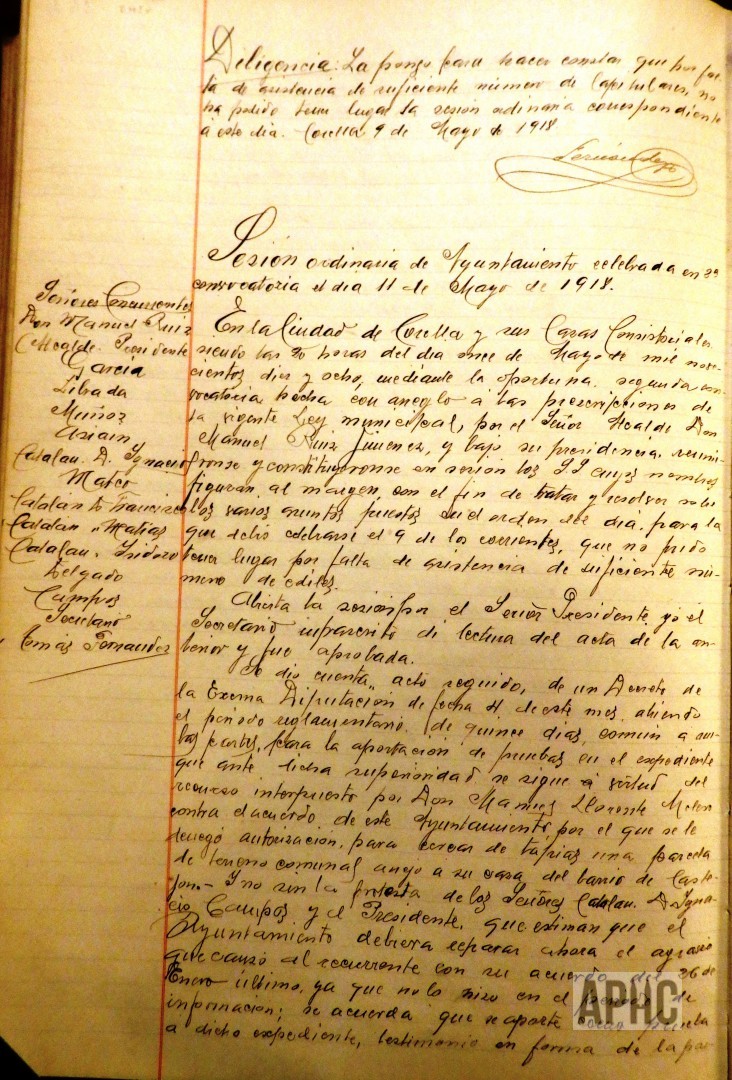 Diligencia: La pongo para hacer constar que por fal-
ta de asistencia de suficiente número de Capitulares, no
ha podido tener lugar la sesión ordinaria correspondiente
a este día. Corella 9 de Mayo de 1918
Sesión ordinaria de Ayuntamiento celebrada en 2ª
convocatoria el día 11 de Mayo de 1918.
Señores Concurrentes
Don Manuel Ruiz
Alcalde-Presidente
García
Librada
Muñoz
Asiain
Catalan D. Ignacio
Mateo
Catalán D. Francisco
Catalan " Matías
Catalan " Isidoro
Delgado
Campos
Secretario
Tomás Fernandez
En la Ciudad de Corella y sus Casas Consistoriales
siendo las 20 horas del día once de Mayo de mil nove-
cientos diez y ocho, mediante la oportuna segunda con-
vocatoria hecha con arreglo a las prescripciones de
la vigente Ley municipal, por el Señor Alcalde Don
Manuel Ruiz Jimenez, y bajo su presidencia, reunie-
ronse y constituyeronse en sesión los SS cuyos nombres
figuran al margen, con el fin de tratar y resolver sobre
los varios asuntos puestos en el orden del día, para la
que debió celebrarse el 9 de los corrientes, que no pudo
tener lugar por falta de asistencia de suficiente nú-
mero de ediles.
Abierta la sesión por el Señor Presidente, yo el
Secretario infrascrito di lectura del acta de la an-
terior y fue aprobada.
Se dió cuenta, acto seguido, de un Decreto de
la Excma Diputación de fecha 4 de este mes, abriendo
el período reglamentario de quince días, común a am-
bas partes, para la aportación de pruebas en el expediente
que ante dicha superioridad se sigue a virtud del
recurso interpuesto por Don Llorente
contra el acuerdo de este Ayuntamiento, por el que se le
denegó autorización, para cercar de tapias una parcela
de terreno comunal anejo a su casa del barrio de Caste-
jon.- Y no sin la protesta de los Señores Catalan D. Igna-
cio, Campos y el Presidente, que estiman que el
Ayuntamiento debiera reparar ahora el agravio
que causó al recurrente con su acuerdo del 26 de
Enero último, ya que no lo hizo en el periodo de
información; se acuerda que se aporte como prueba
a dicho expediente, testimonio en forma de la par-
APHC